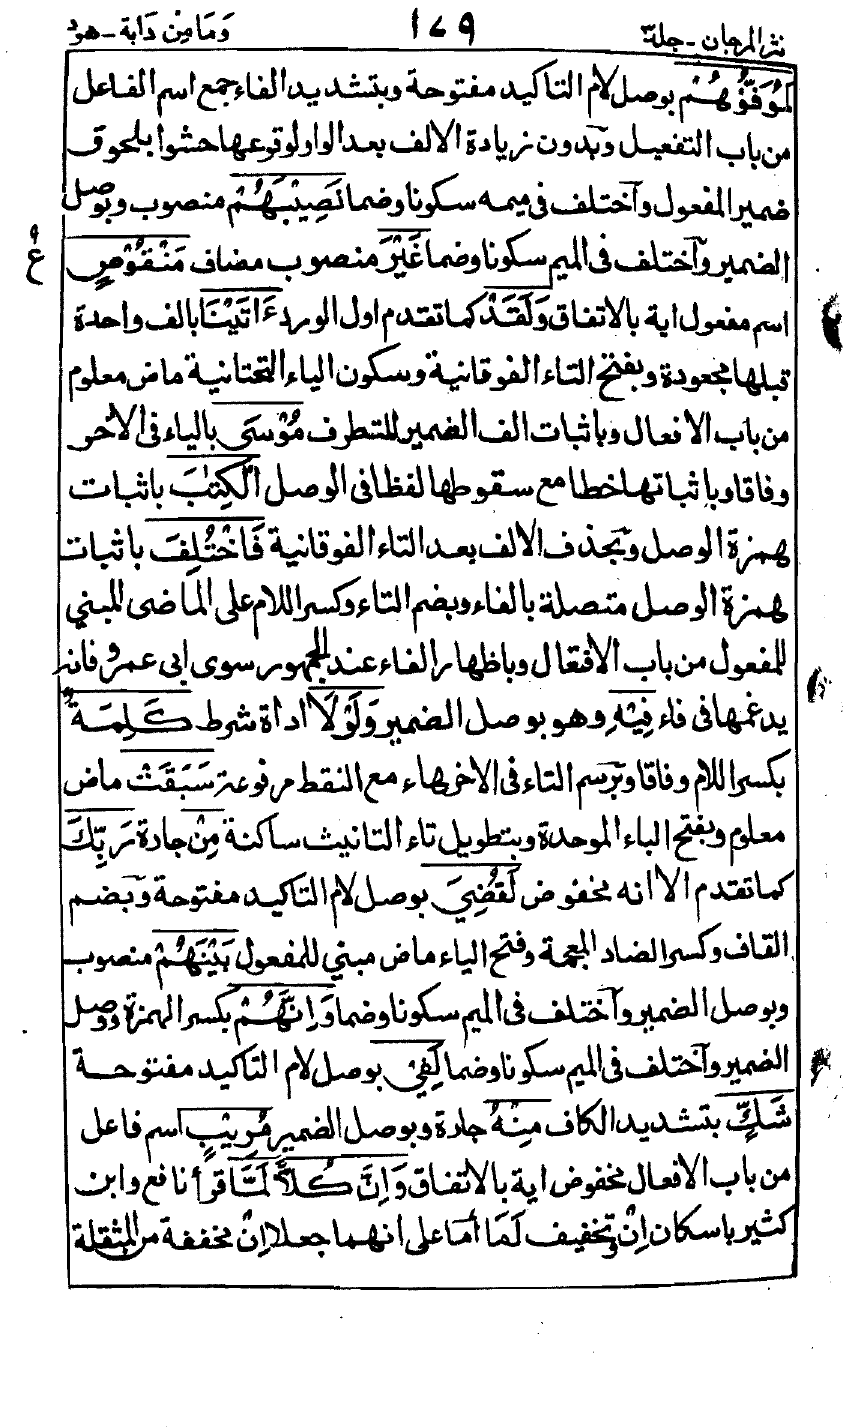 نثر المرجان - جلد ٣ ١٧٩ وَمَا مِن دَابة - هود
لَمُوَفُّوهُمْ بوصل لام التاكيد مفتوحة وبتشديد الفاء جمع اسم الفاعل
من باب التفعيل وبدون زيادة الالف بعد الواو لوقوعها حشوا بلحوق
ضمير المفعول واختلف فى ميمه سكونا وضما نَصِيْبَهُمْ منصوب وبوصل
الضمير واختلف فى الميم سكونا وضما غَيْرَ منصوب مضاف مَنْقُوْصٍ
ع ٩
اسم مفعول اية بالاتفاق وَلَقَدْ كما تقدم اول الورد ءَاتَيْنَا بالف واحدة
قبلها مجعودة وبفتح التاء الفوقانية وسكون الياء التحتانية ماض معلوم
من باب الافعال وباثبات الف الضمير للتطرف مُوْسَى بالياء فى الاخر
وفاقا وباثباتها خطا مع سقوطها لفظا فى الوصل الْكِتٰبَ باثبات
همزة الوصل وبحذف الالف بعد التاء الفوقانية فَاخْتُلِفَ باثبات
همزة الوصل متصلة بالفاء وبضم التاء وكسر اللام على الماضى المبني
للمفعول من باب الافتعال وباظهار الفاء عند الجمهور سوى ابى عمرو فانه
يدغمها فى فاء فِيْهِ وهو بوصل الضمير وَلَوْلَا اداة شرط كَلِمَةٌ
بكسر اللام وفاقا وبرسم التاء فى الاخر هاء مع النقط مرفوعة سَبَقَتْ ماض
معلوم وبفتح الباء الموحدة وبتطويل تاء التانيث ساكنة مِنْ جارة رَبِّكَ
كما تقدم الا انه مخفوض لَقُضِيَ بوصل لام التاكيد مفتوحة وبضم
القاف وكسر الضاد المعجمة وفتح الياء ماض مبني للمفعول بَيْنَهُمْ منصوب
وبوصل الضمير واختلف فى الميم سكونا وضما وَاِنَّهُمْ بكسر الهمزة ووصل
الضمير واختلف فى الميم سكونا وضما لَفِيْ بوصل لام التاكيد مفتوحة
شَكٍّ بتشديد الكاف مِنْهُ جارة وبوصل الضمير مُرِيْبٍ اسم فاعل
من باب الافعال مخفوض اية بالاتفاق وَاِنَّ كُلًّا لَمَّا قرأ نافع وابن
كثير باسكان اِنْ وتخفيف لَمَا أما على انهما جعلا اِنْ مخففة من المثقلة